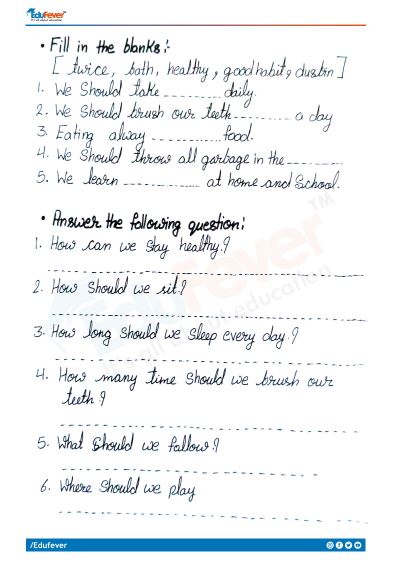 EduFever
• Fill in the blanks:-
[ twice, bath, healthy, good habits, dustbin ]
1. We Should take .......... daily.
2. We Should brush our teeth .......... a day
3. Eating alway .......... food.
4. We Should throw all garbage in the ..........
5. We learn .......... at home and School.
• Answer the following question:
1. How can we stay healthy?
2. How Should we sit?
3. How long Should we sleep every day?
4. How many time Should we brush our
teeth?
5. What Should we follow?
6. Where Should we play
EduFever
TM
it's all about education
/Edufever